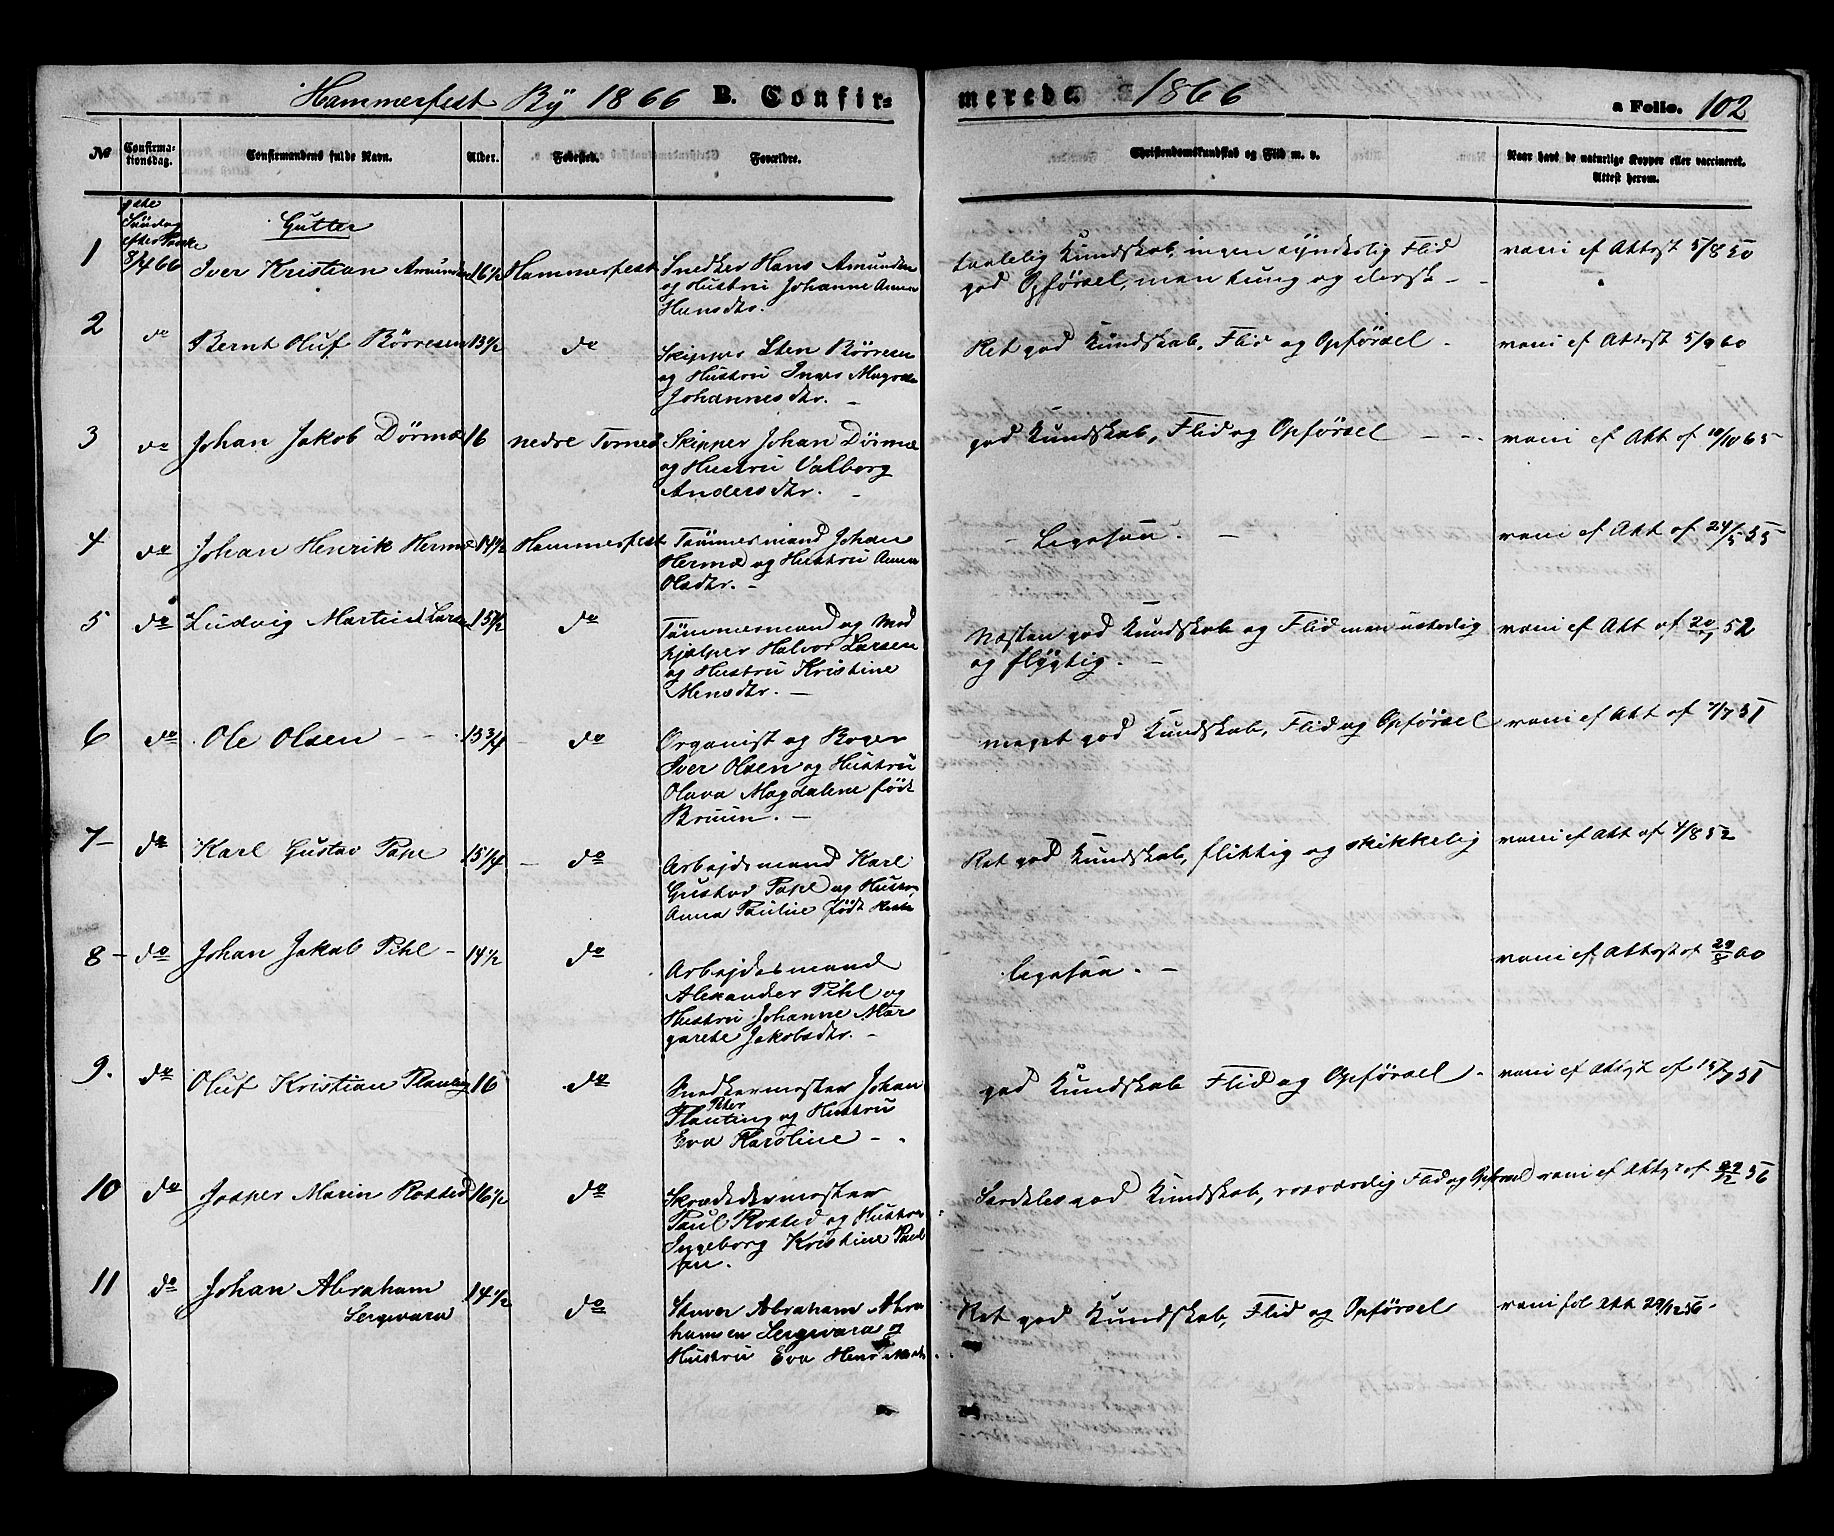 Hammerfest By 1866 B. Confir=
merede. 1866 a Folio. 102
No Confirma-tionsdag. Confirmandens fulde Navn. Alder. Fødested. Forældre. Christendomskundskab og Flid m. v. Naar havt de naturlige Kopper eller vaccineret. Attest herom.
Søndag
efter Paaske
8/4 66
Gutter
1 Iver Kristian Amundsen 16½ Hammerfest Snedker Hans Amundsen
og Hustru Johanne Anna
Hansdtr.
taalelig Kundskab, ingen synderlig Flid
god Opførsel, men tung og dorsk -
vacci ef Attest 5/8 50
2 do Bernt Oluf Börresen 15½ do Skipper Sten Börresen
og Hustru Inger Margrete
Johannesdtr. -
Ret god Kundskab, Flid og Opførsel - vacci ef Attest 5/9 60
3 do Johan Jakob Dörmæ 16 nedre Torneå Skipper Johan Dörmæ
og Hustru Valborg
Andersdtr. -
god Kundskab, Flid og Opførsel - - vacci ef Att af 10/10 65
4 do Johan Henrik Hermæ 14½ Hammerfest Tømmermand Johan
Hermæ og Hustru Anna
Olsdtr. -
- Ligesaa. - vacci ef Att af 24/5 55
5 do Ludvig Martin Larsen 15½ do Tømmermand og Med
hjælper Halvor Larsen
og Hustru Kristine
Mensdtr. -
Næsten god Kundskab og Flid men ustadig
og flygtig. -
vacci ef Att af 20/7 52
6 do Ole Olsen - - 15¾ do Organist og Boger
Iver Olsen og Hustru
Olava Magdalene født
Bruun. -
meget god Kundskab, Flid og Opførsel vacci ef Att af 7/7 51
7 - do Karl Gustav Pape 15¼ - do Arbejdsmand Karl
Gustav Pape og Hustru
Anna Pauline født
Ret god Kundskab, flittig og skikkelig vacci ef Att af 4/8 52
8 - do Johan Jakob Pihl - 14½ do Arbejdesmand
Alexander Pihl og
Hustru Johanne Mar
garete Jakobsdtr. -
ligesaa. - vacci ef Attest af 29/8 60
9. do Oluf Kristian Planting 16 do Snedkermester Johan
Peter
Planting og Hustru
Eva Karoline -
god Kundskab Flid og Opførsel - vacci ef Attest af 15/7 51
10 do Jesper Marin Rosted 16½ do Skræddermester
Paul Rosted og Hustru
Ingeborg Kristine Paul
sen.
Særdeles god Kundskab, rosværdig Flid og Opførsel vacci ef Att af 22/2 56
11 do Johan Abraham
Sergevara
14½ do Stuver Abraham Abra
hamsen Sergevara og
Hustru Eva
Ret god Kundskab, Flid og Opførsel vacci føl Att 29/12 56 -